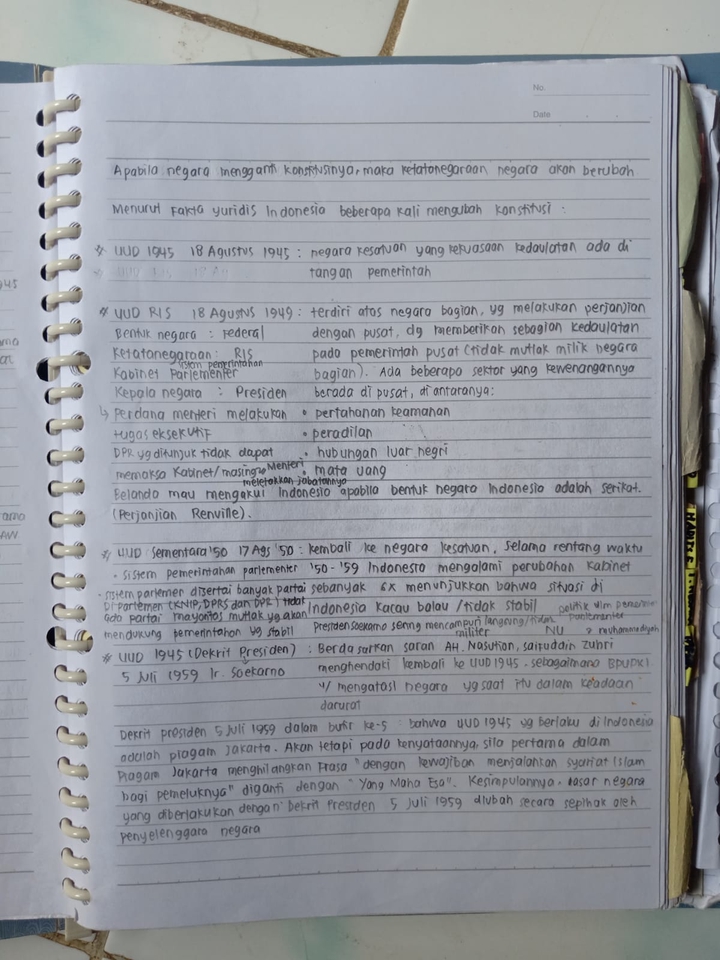 No.
Date
Apabila negara mengganti konstitusinya, maka ketatanegaraan negara akan berubah
Menurut fakta yuridis Indonesia beberapa kali mengubah konstitusi :
* UUD 1945 18 Agustus 1945 : negara kesatuan yang kekuasaan kedaulatan ada di
tangan pemerintah
* UUD RIS 18 Agustus 1949 : terdiri atas negara bagian, yg melakukan perjanjian
Bentuk negara : Federal dengan pusat, dg memberikan sebagian kedaulatan
Ketatanegaraan : RIS pada pemerintah pusat (tidak mutlak milik negara
sistem pemerintahan
Kabinet Parlementer bagian). Ada beberapa sektor yang kewenangannya
Kepala negara : Presiden berada di pusat, diantaranya:
↳ Perdana menteri melakukan • pertahanan keamanan
tugas eksekutif • peradilan
DPR yg ditunjuk tidak dapat • hubungan luar negri
memaksa Kabinet/masing2 Menteri • mata uang
meletakkan jabatannya
Belanda mau mengakui Indonesia apabila bentuk negara Indonesia adalah serikat.
(Perjanjian Renville).
* UUD Sementara '50 17 Ags '50 : kembali ke negara kesatuan, selama rentang waktu
• sistem pemerintahan parlementer '50 - '59 Indonesia mengalami perubahan kabinet
• sistem parlemen disertai banyak partai sebanyak 6x menunjukkan bahwa situasi di
Di parlemen (KNIP, DPRS dan DPR) tidak Indonesia kacau balau /tidak stabil
politik dlm
ada partai mayoritas mutlak yg akan Presiden Soekarno sering mencampuri langsung/tidak parlementer
mendukung pemerintahan yg stabil militer NU > muhammadiyah
* UUD 1945 (Dekrit Presiden) : Berdasarkan saran AH. Nasution, saifuddin zuhri
5 Juli 1959 Ir. Soekarno menghendaki kembali ke UUD 1945. sebagaimana BPUPKI
u/ mengatasi negara yg saat itu dalam keadaan
darurat
Dekrit presiden 5 Juli 1959 dalam butir ke-5 : bahwa UUD 1945 yg berlaku di Indonesia
adalah piagam Jakarta. Akan tetapi pada kenyataannya, sila pertama dalam
Piagam Jakarta menghilangkan Frasa "dengan kewajiban menjalankan syariat Islam
bagi pemeluknya" diganti dengan "Yang Maha Esa". Kesimpulannya. dasar negara
yang diberlakukan dengan Dekrit Presiden 5 Juli 1959 diubah secara sepihak oleh
penyelenggara negara